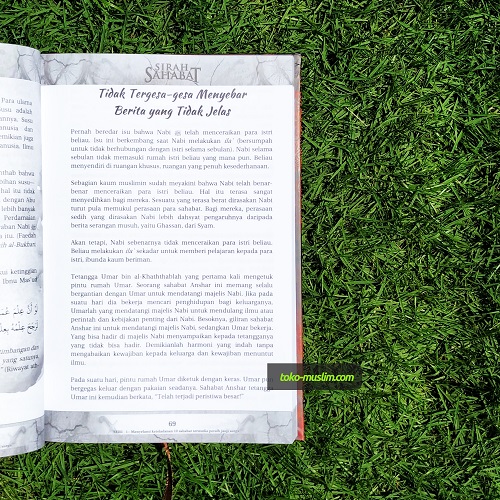 Para ulama
SIRAH
SAHABAT
Tidak Tergesa-gesa Menyebar
Berita yang Tidak Jelas
Pernah beredar isu bahwa Nabi ﷺ telah menceraikan para istri
beliau. Isu ini berkembang saat Nabi melakukan ila' (bersumpah
untuk tidak berhubungan dengan istri selama sebulan). Nabi selama
sebulan tidak memasuki rumah istri beliau yang mana pun. Beliau
menyendiri di ruangan khusus, ruangan yang penuh kesederhanaan.
Sebagian kaum muslimin sudah meyakini bahwa Nabi telah benar-
benar menceraikan para istri beliau. Hal itu terasa sangat
menyedihkan bagi mereka. Sesuatu yang terasa berat dirasakan Nabi
turut pula memukul perasaan para sahabat. Bagi mereka, perasaan
sedih yang dirasakan Nabi lebih dahsyat pengaruhnya daripada
berita serangan musuh, yaitu Ghassan, dari Syam.
Akan tetapi, Nabi sebenarnya tidak menceraikan para istri beliau.
Beliau melakukan ila' sekadar untuk memberi pelajaran kepada para
istri, ibunda kaum beriman.
Tetangga Umar bin al-Khaththablah yang pertama kali mengetuk
pintu rumah Umar. Seorang sahabat Anshar ini memang selalu
bergantian dengan Umar untuk mendatangi majelis Nabi. Jika pada
suatu hari dia bekerja mencari penghidupan bagi keluarganya,
Umarlah yang mendatangi majelis Nabi untuk mendulang ilmu atau
perintah dan kebijakan penting dari Nabi. Besoknya, giliran sahabat
Anshar ini untuk mendatangi majelis Nabi, sedangkan Umar bekerja.
Yang bisa hadir di majelis Nabi menyampaikan kepada tetangganya
yang tidak bisa hadir. Demikianlah harmoni yang indah tanpa
mengabaikan kewajiban kepada keluarga dan kewajiban menuntut
ilmu.
Pada suatu hari, pintu rumah Umar diketuk dengan keras. Umar pun
bergegas keluar dengan pakaian seadanya. Sahabat Anshar tetangga
Umar ini kemudian berkata, "Telah terjadi peristiwa besar!"
69
toko-muslim.com